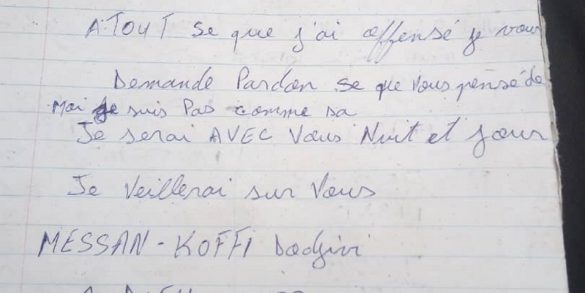 A TOUT se que j'ai offensé je vous
Demande Pardon se que vous pensé de
Moi je suis Pas comme sa
Je serai AVEC Vous Nuit et jour
Je Veillerai sur Vous
MESSAN - KOFFI Dodjivi